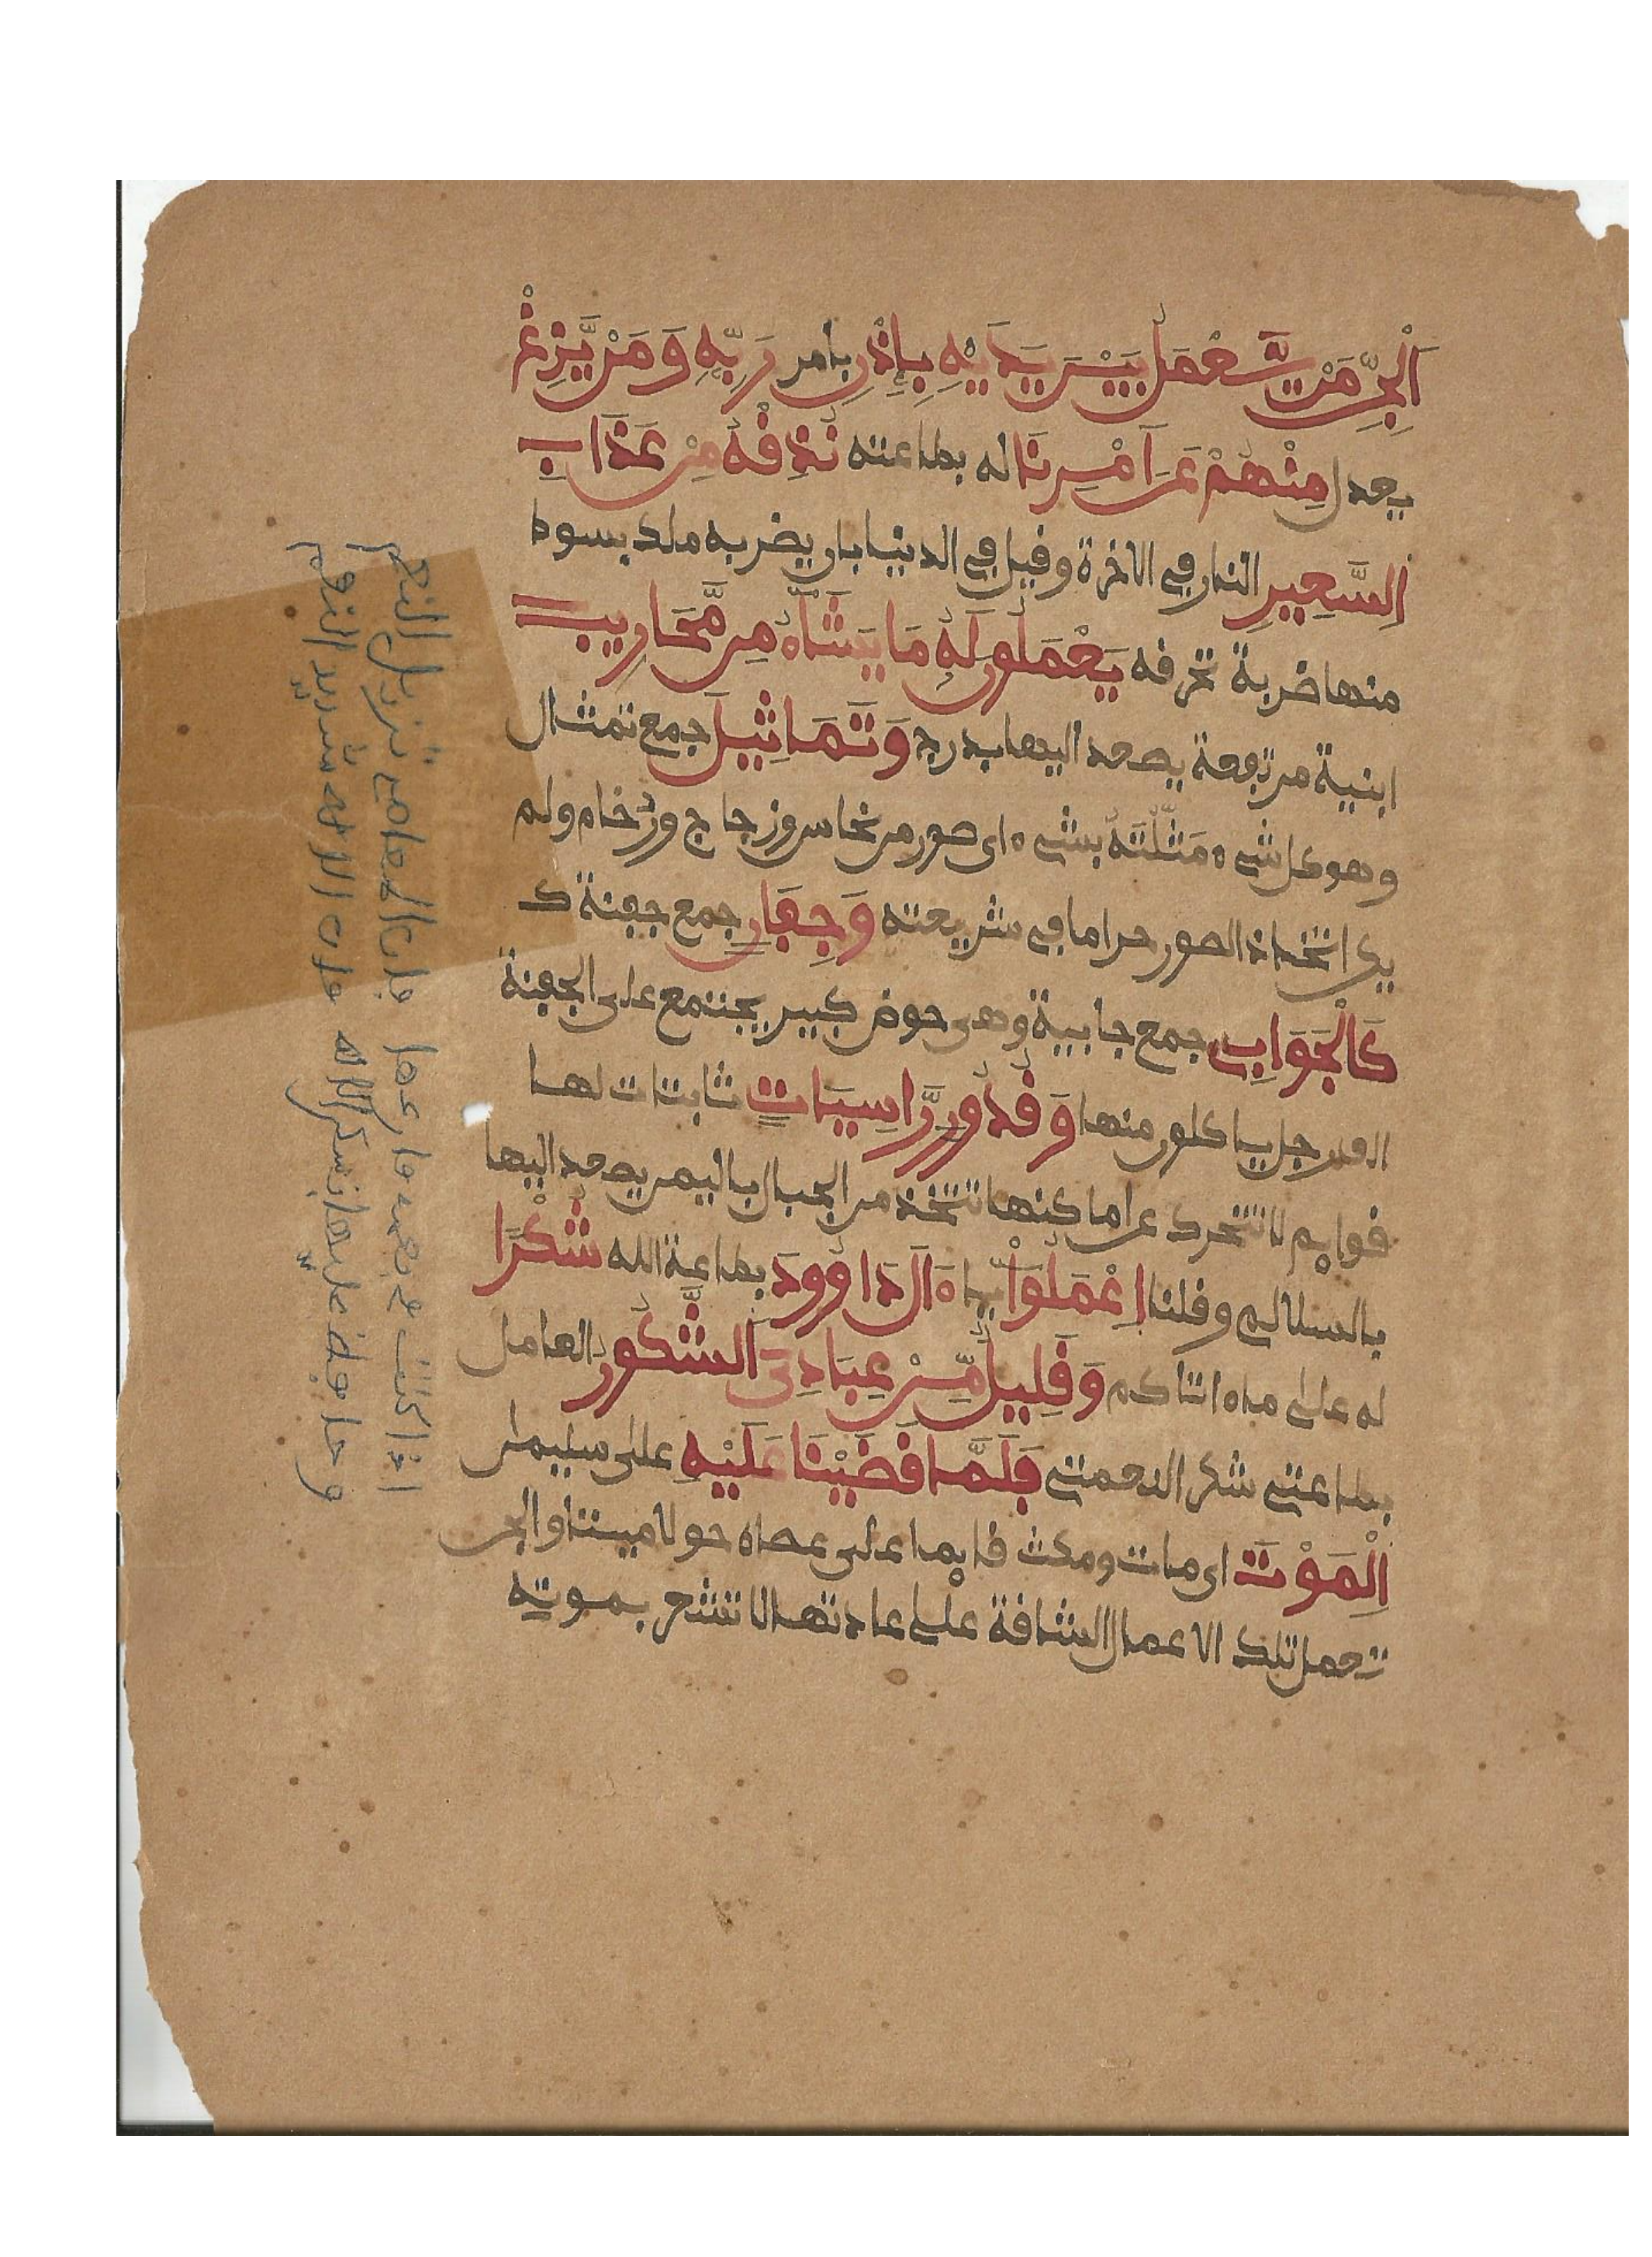 اَلْجِنِّ مَنْ يَّعْمَلُ بَيْنَ يَدَيْهِ بِإِذْنِ بامر رَبِّهِ وَمَنْ يَّزِغْ
يعدل مِنْهُمْ عَنَ اَمْرِنَا له بطاعته نُذِقْهُ مِنْ عَذَابِ
اِلسَّعِيرِ النار في الاخرة وقيل في الدنيا بان يضربه ملك بسوط
منها ضربة تحرقه يَعْمَلُونَ لَهُ مَا يَشَآءُ مِن مَّحَارِيبَ
ابنية مرتفعة يصعد اليها بدرج وَتَمَاثِيلَ جمع تمثال
وهو كل شىء مَثَّلْتَهُ بشىء اى صور من نحاس وزجاج ورُخام ولم
يكن اتخاذ الصور حراما في شريعته وَجِفَانٍ جمع جفنة ك
كَالْجَوَابِ جمع جابية وهى حوض كبير يجتمع على الجفنة
الف رجل ياكلون منها وَقُدُورٍ رَّاسِيَاتٍ ثابتات لها
قوايم لا تتحرك عن اماكنها تتخذ من الجبال باليمن يصعد اليها
بالسلالم وقلنا اِعْمَلُوٓاْ يا ءَالَ دَاوُودَ بطاعة الله شُكْرًا
له على ما ءاتاكم وَقَلِيلٌ مِّنْ عِبَادِىَ اَلشَّكُورُ العامل
بطاعتى شكرا لنعمتى فَلَمَّا قَضَيْنَا عَلَيْهِ على سليمن
اِلْمَوْتَ اى مات ومكث قايما على عصاه حولا ميتا والجن
تعمل تلك الاعمال الشاقة على عادتها لا تشعر بموته
اذا كنت في نعمة فارعها فان المعاصي تزيل النعم
وحافظ عليها بشكر الاله فان الاله شديد النقم